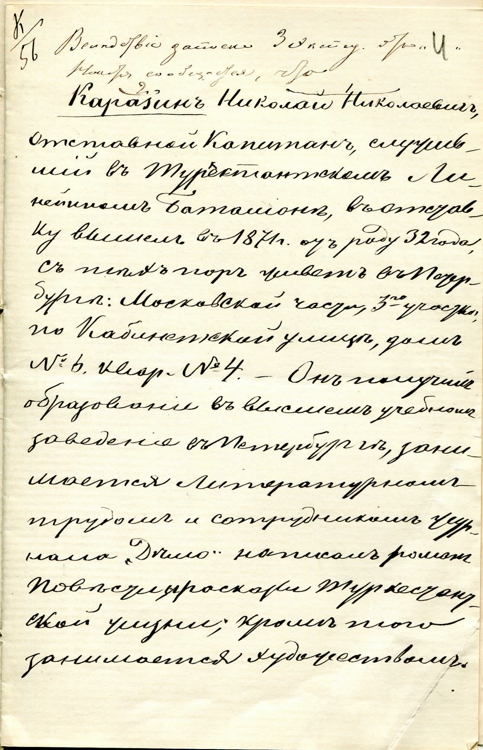 К/56
Вследствіе записки 3 Экспед.
сообщается, что
Каразинъ Николай Николаевичъ,
отставной Капитанъ, служив-
шій въ Туркестанскомъ Ли-
нейномъ Баталіонѣ, въ отстав-
ку вышелъ въ 1871 г. отъ роду 32 года,
съ тѣхъ поръ живетъ въ Петер-
бургѣ: Московской части, 3го участка,
по Кабинетской улицѣ, домъ
№ 6. квар. № 4. — Онъ получилъ
образованіе въ высшемъ учебномъ
заведеніе въ Петербургѣ, зани-
мается литературномъ
трудомъ и сотрудникомъ жур-
нала „Дѣло" написалъ романъ
повѣсти, расказы Туркестан-
ской жизни; кромѣ того
занимается художествомъ.